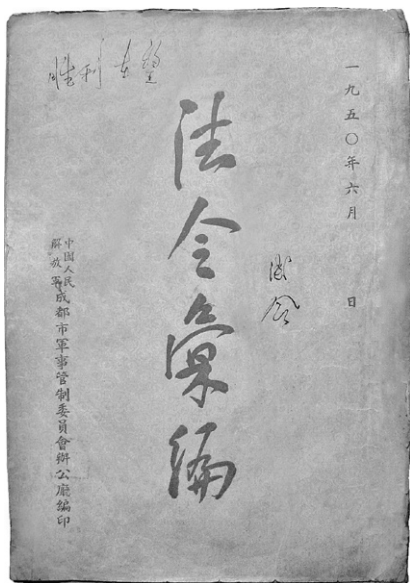 一九五〇年六月 日
法令彙編
中國人民解放軍成都市軍事管制委員會辦公廳編印
胜利